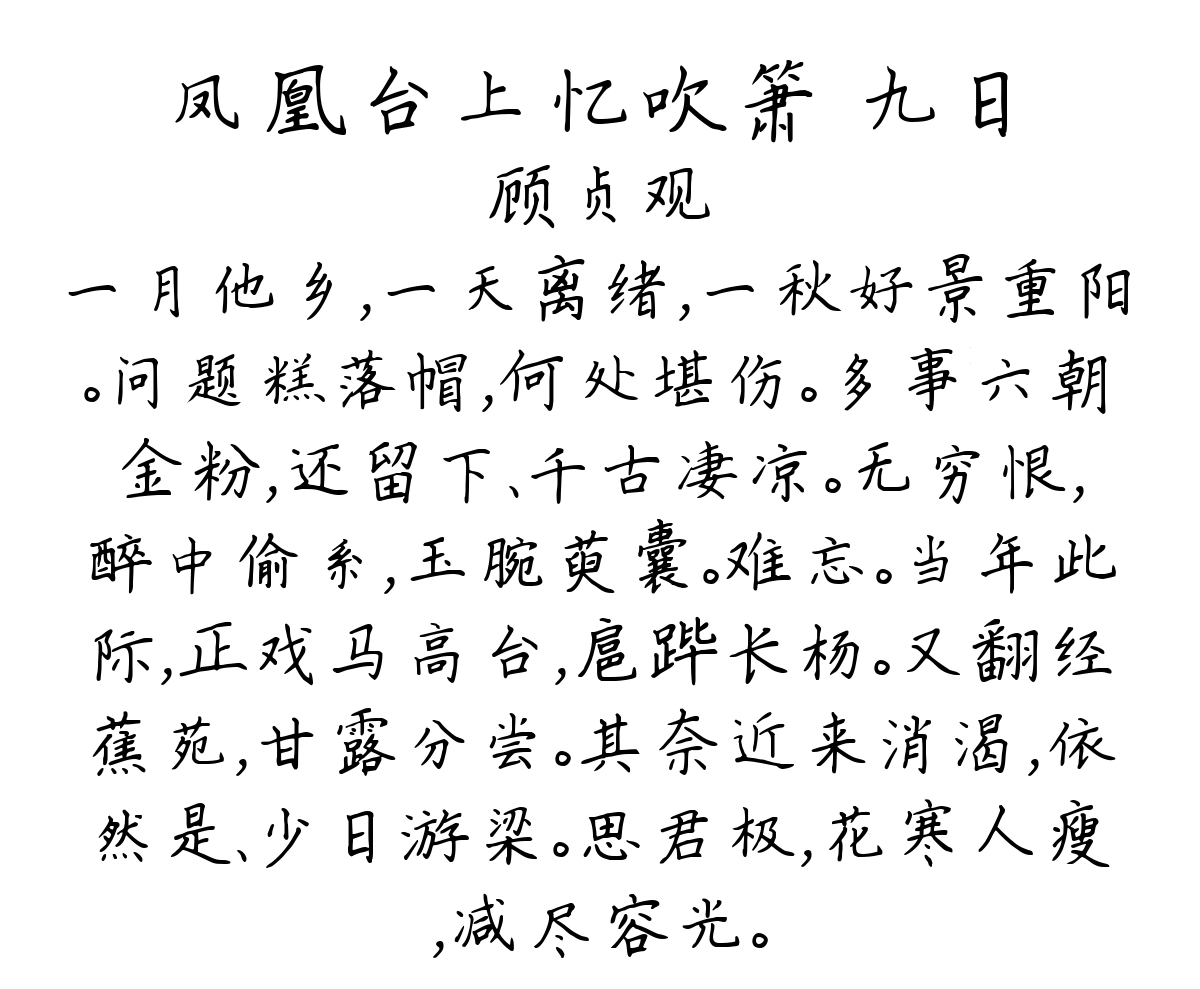 凤凰台上忆吹箫 九日
顾贞观
一月他乡,一天离绪,一秋好景重阳
。问题糕落帽,何处堪伤。多事六朝
金粉,还留下、千古凄凉。无穷恨,
醉中偷系,玉腕萸囊。难忘。当年此
际,正戏马高台,扈跸长杨。又翻经
蕉苑,甘露分尝。其奈近来消渴,依
然是、少日游梁。思君极,花寒人瘦
,减尽容光。